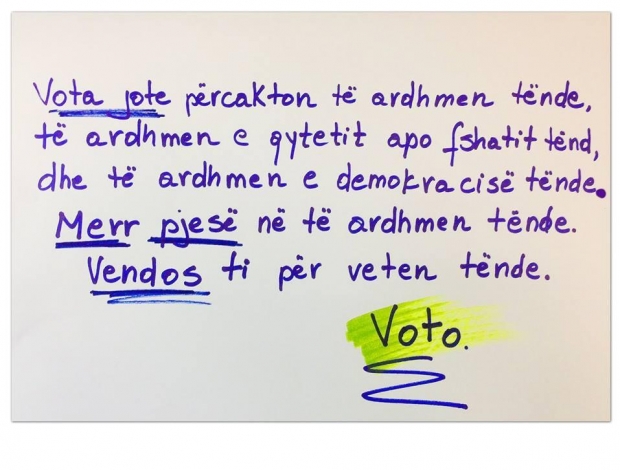 Vota jote përcakton të ardhmen tënde,
të ardhmen e qytetit apo fshatit tënd,
dhe të ardhmen e demokracisë tënde.
Merr pjesë në të ardhmen tënde.
Vendos ti për veten tënde.
Voto.